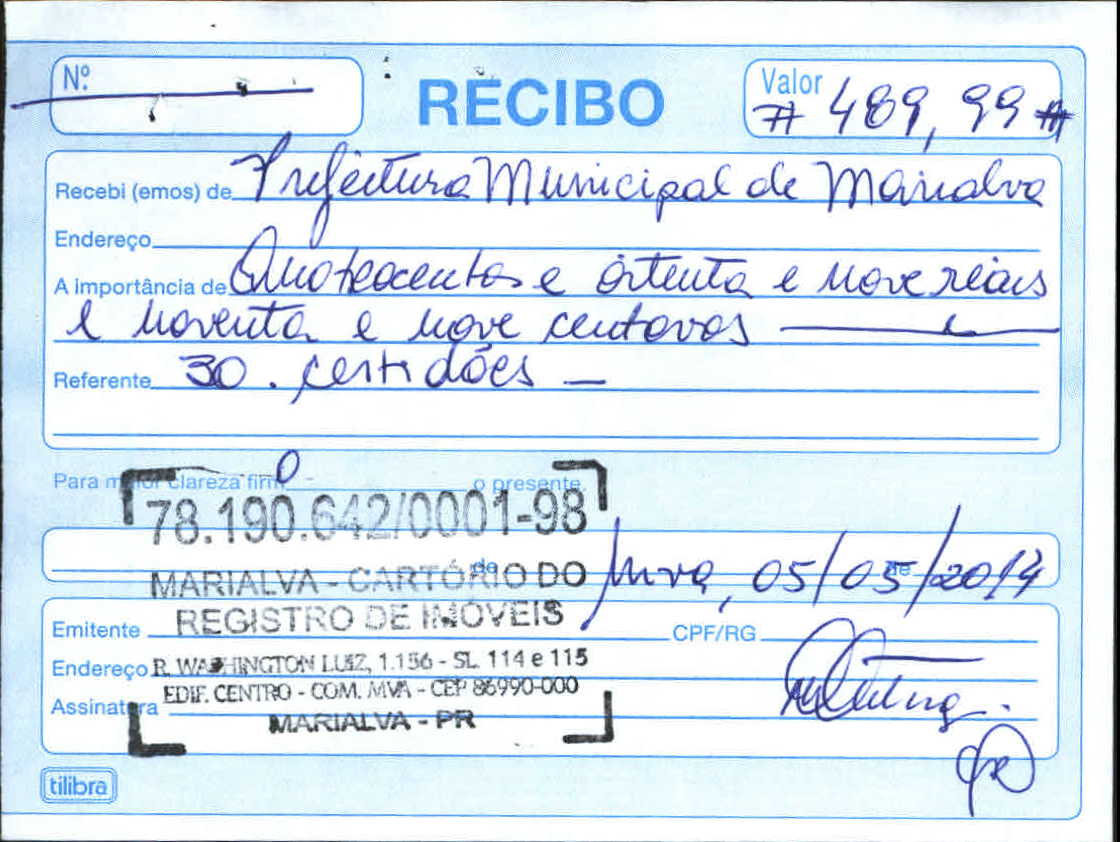 Nº
RECIBO
Valor # 489,99 #
Recebi (emos) de Prefeitura Municipal de Marialva
Endereço
A importância de Quatrocentos e oitenta e nove reais
e noventa e nove centavos
Referente 30. certidões
Para maior clareza firm o o presente.
78.190.642/0001-98
de
MARIALVA - CARTÓRIO DO
Mva, 05/05/2014
REGISTRO DE IMÓVEIS
Emitente CPF/RG
Endereço R. WASHINGTON LUIZ, 1.156 - SL. 114 e 115
EDIF. CENTRO - COM. MVA - CEP 86990-000
Assinatura
MARIALVA - PR
tilibra